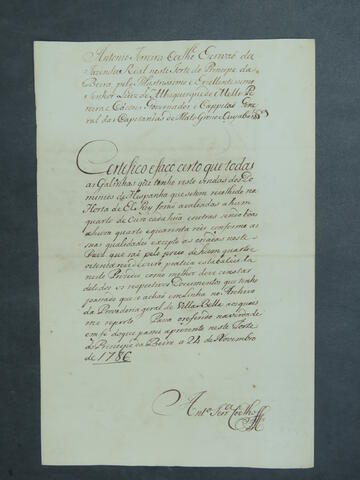 Antonio Ferreira Coelho Escrivão da
Fazenda Real neste Forte do Principe da
Beira, pelo Illustrissimo e Excellentissimo
Senhor Luiz de Albuquerque de Mello Pe
reira e Cáceres Governador e Cappitão Gene
ral das Capitanias de Mato Groço e Cuyabá &ª
Certifico e faço certo que todas
as Galinhas que tenho neste vindas dos Do
minios de Hespanha que se tem recolhido na
Horta de El Rey foram avaliadas a hum
quarto de Ouro cada huã e outras
a hum quarto e quarenta reis conforme as
suas qualidades excepto as
que sahe pelo preço de hum quarto
de ouro pratica estabalicida
neste Prezidio como milhor deve constar
dellas os respectivos Documentos que tenho
passado que se achão no Archivo
da Provedoria geral de Villa Bella aos quaes
me reporto Para o referido na verd.e de
em fé do que passei a prezente neste Forte
do Principe da Beira a 24 de Novembro
de 1786
Ant.º Ferr.ª Coelho